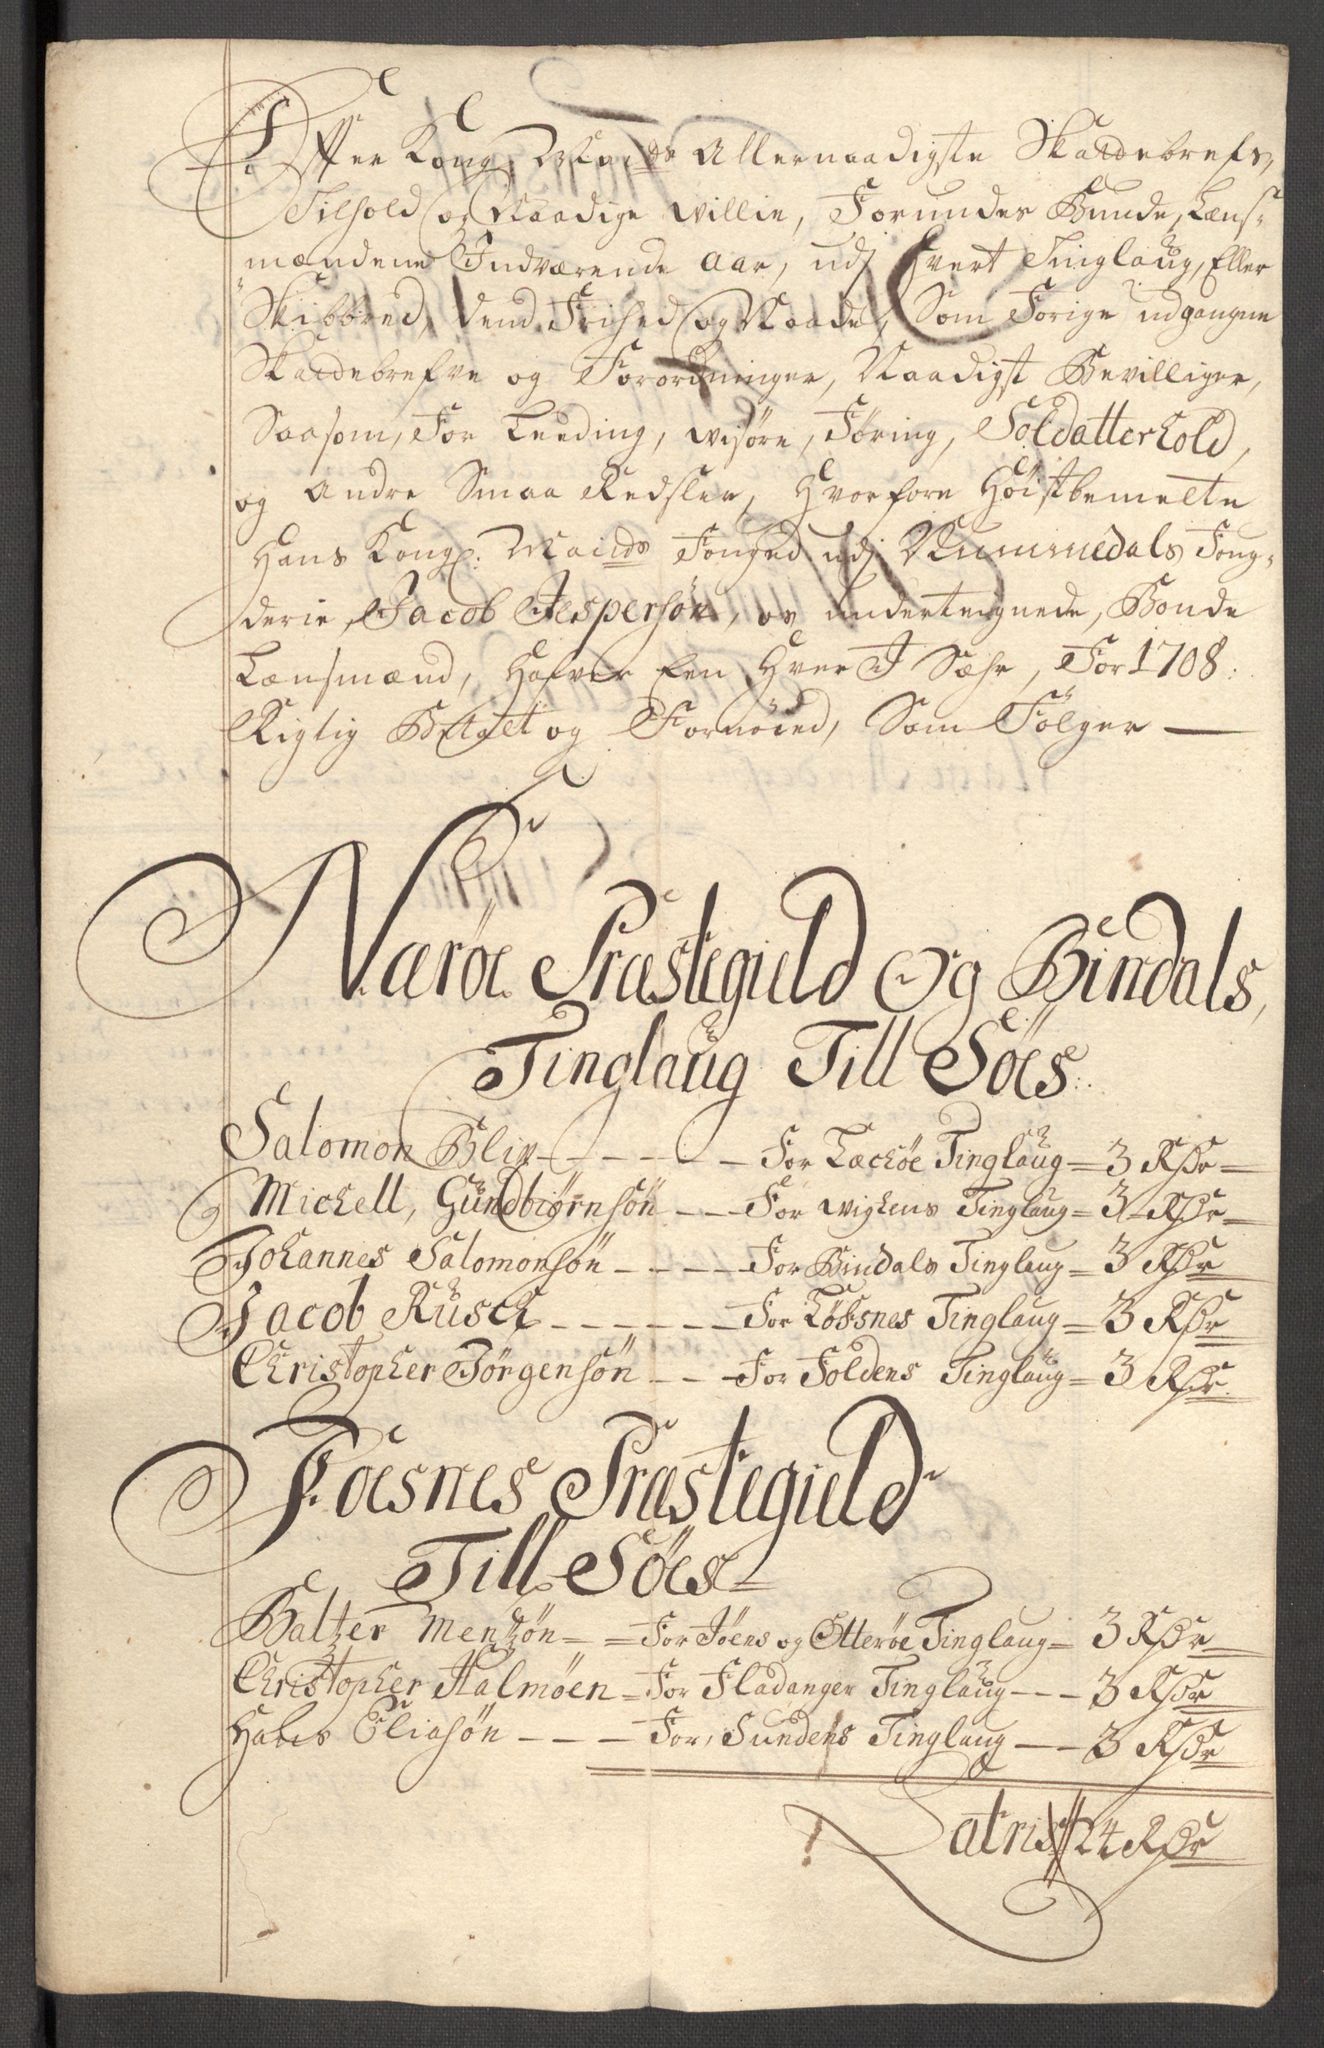 Effter Kong: Maÿtz Allernaadigste Skattebrefs,
Tilhold og Naadige willie, Forundes Bunde, Læns-
mændene Indværende Aar, udj hvert Tinglaug, Eller
Skibbred, dend Frihed og Naade, Som Forige udgangne
Skattebrefve og Forordninger, Naadigst Bevilliger,
Saasom, For Leeding, wisøre, Føring, Soldatterhold,
og Andre Smaa Redsler, Hvorfore Høistbemelte
Hans Kongl: Maÿtz Fouged udj Nummedals Foug-
derie, Jacob Jespersøn, os underteignede, Bonde
Lænsmænd, Hafver Een Hver J Sæhr, For 1708:
Rigtig Betalt og Fornøied, Som Følger —
Nærøe Præstegield Og Bindals,
Tinglaug Till Søes
Salomon Blix - - - - - For Leckøe Tinglaug = 3 Rdr —
Michell, Gundbiørnsøn - - For wigtens Tinglaug = 3 Rdr —
Johannes Salomonsøn - - - - For Bindals Tinglaug = 3 Rdr
Jacob Rusck - - - - - - For Løfsnes Tinglaug = 3 Rdr
Christopher Jørgensøn - - For Foldens Tinglaug = 3 Rdr
Foesnes Præstegield
Till Søes
Baltzer Mentzøn - = For Jøens og Otterøe Tinglaug = 3 Rdr
Christopher Halmøen = For Fladanger Tinglaug - - - 3 Rdr
Hans Eliasøn - - - - For, Sundens Tinglaug - - 3 Rdr
Latris // 24 Rdr